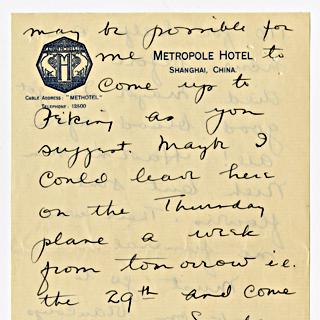 may be possible for
me METROPOLE HOTEL to
SHANGHAI, CHINA.
come up to
CABLE ADDRESS: "METHOTEL"
TELEPHONE: 12500
Peking as you
suggest. Maybe I
could leave here
on the Thursday
plane a week
from tomorrow i.e.
the 29th and come